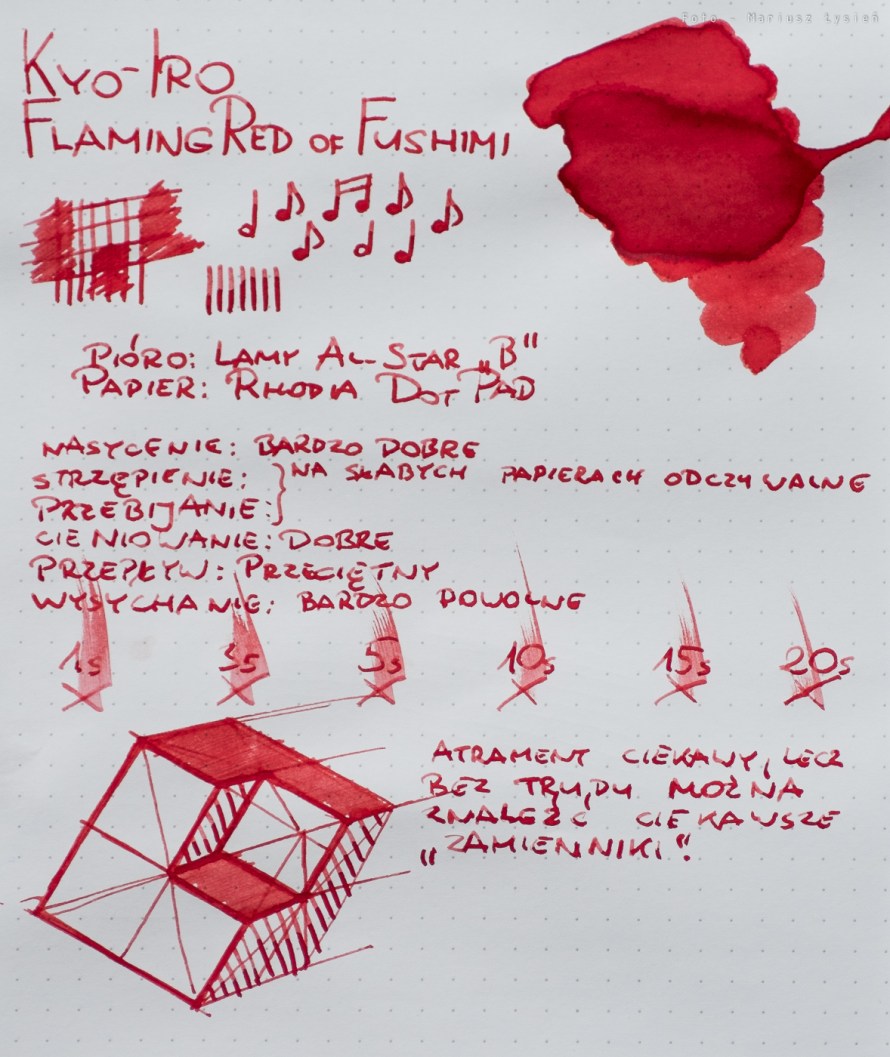 Foto - Mariusz Łysień
KYO-IRO
FLAMING RED OF FUSHIMI
PIÓRO: LAMY AL-STAR „B"
PAPIER: RHODIA DOT PAD
NASYCENIE: BARDZO DOBRE
STRZĘPIENIE: } NA SŁABYCH PAPIERACH ODCZUWALNE
PRZEBIJANIE:
CIENIOWANIE: DOBRE
PRZEPŁYW: PRZECIĘTNY
WYSYCHANIE: BARDZO POWOLNE
1s 3s 5s 10s 15s 20s
ATRAMENT CIEKAWY, LECZ
BEZ TRUDU MOŻNA
ZNALEŹĆ CIEKAWSZE
„ZAMIENNIKI".